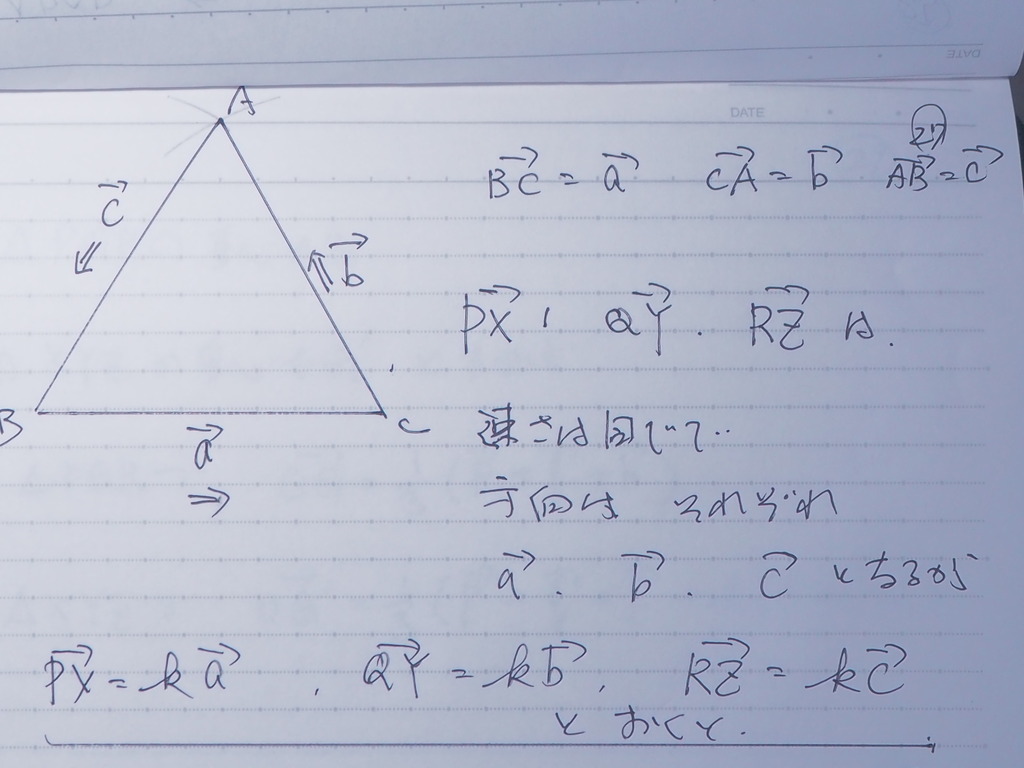 DATE
DATE
A
21
BC→ = a→  CA→ = b→  AB→ = c→
c→
b→
PX→, QY→. RZ→ は.
B
C
a→
速さは同じで..
⇒
方向は それぞれ
a→. b→. c→ となるから
PX→ = ka→, QY→ = kb→, RZ→ = kc→
とおくと.